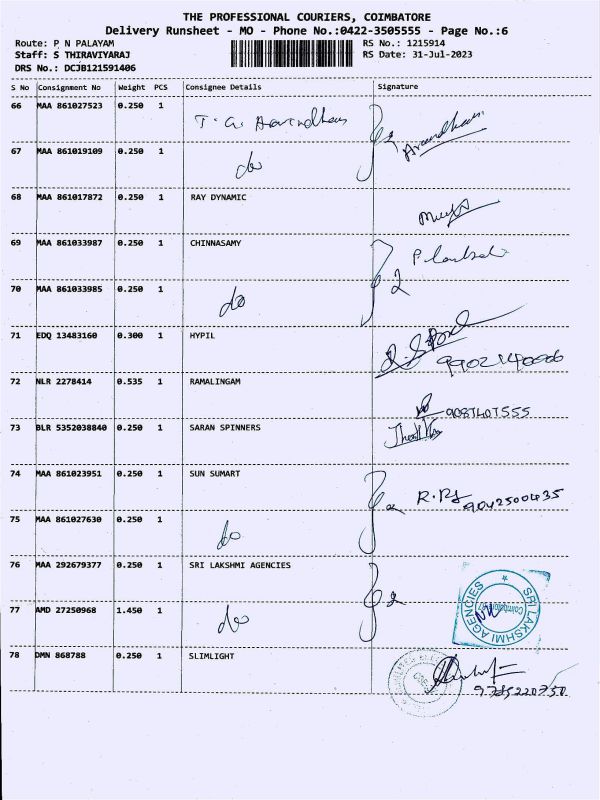 THE PROFESSIONAL COURIERS, COIMBATORE
Delivery Runsheet - MO - Phone No.:0422-3505555 - Page No.:6
Route: P N PALAYAM RS No.: 1215914
Staff: S THIRAVIYARAJ RS Date: 31-Jul-2023
DRS No.: DCJB121591406
S No Consignment No Weight PCS Consignee Details Signature
66 MAA 861027523 0.250 1 T. G. Aravindhan
67 MAA 861019109 0.250 1 do
68 MAA 861017872 0.250 1 RAY DYNAMIC
69 MAA 861033987 0.250 1 CHINNASAMY
70 MAA 861033985 0.250 1 do 2
71 EDQ 13483160 0.300 1 HYPIL
72 NLR 2278414 0.535 1 RAMALINGAM 9087407555
73 BLR 5352038840 0.250 1 SARAN SPINNERS
74 MAA 861023951 0.250 1 SUN SUMART 9042500435
75 MAA 861027630 0.250 1 do
76 MAA 292679377 0.250 1 SRI LAKSHMI AGENCIES 2 SRI LAKSHMI AGENCIES
77 AMD 27250968 1.450 1 do
78 DMN 868788 0.250 1 SLIMLIGHT